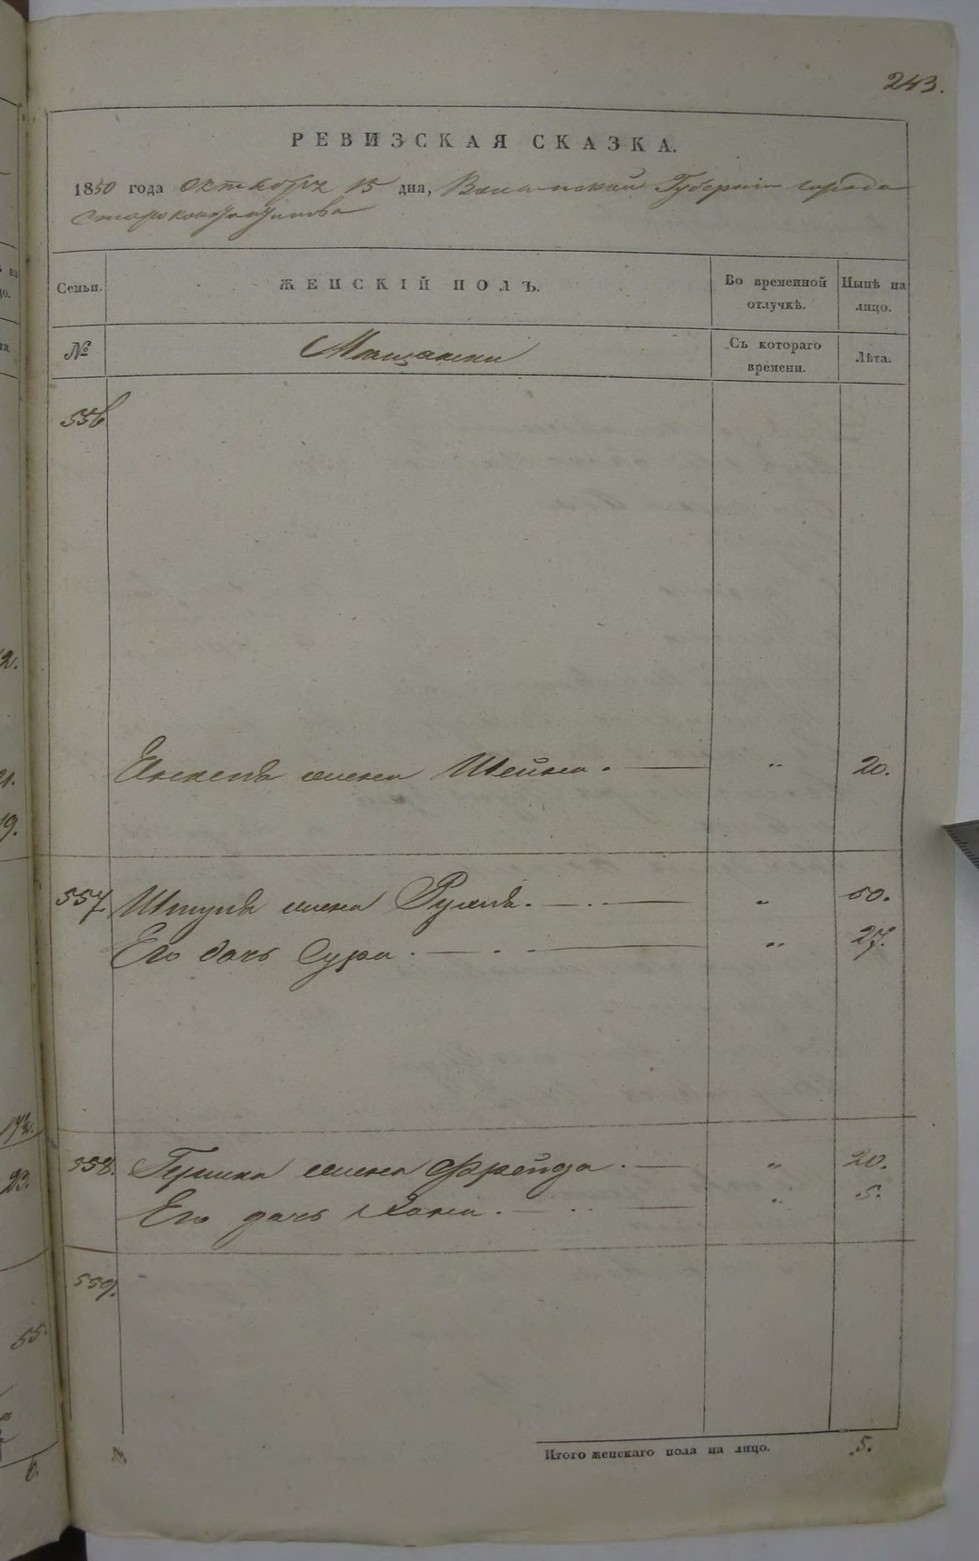 243.
РЕВИЗСКАЯ СКАЗКА.
1850 года октября 15 дня, Волынской Губернии города
Староконстантинова
Семьи. ЖЕНСКІЙ ПОЛЪ. Во временной отлучкѣ. Нынѣ на лицо.
№ Мещанки Съ котораго времени. Лѣта.
556
жена Шейна. — " 20.
557 жена Рухля. — " 50.
Его дочь Сура. — " 27.
558. Гершка жена Фрейда. — " 20.
Его дочь Хана. — " 5.
559.
Итого женскаго пола на лицо. 5.
2.
21.
19.
23.
55.
6.